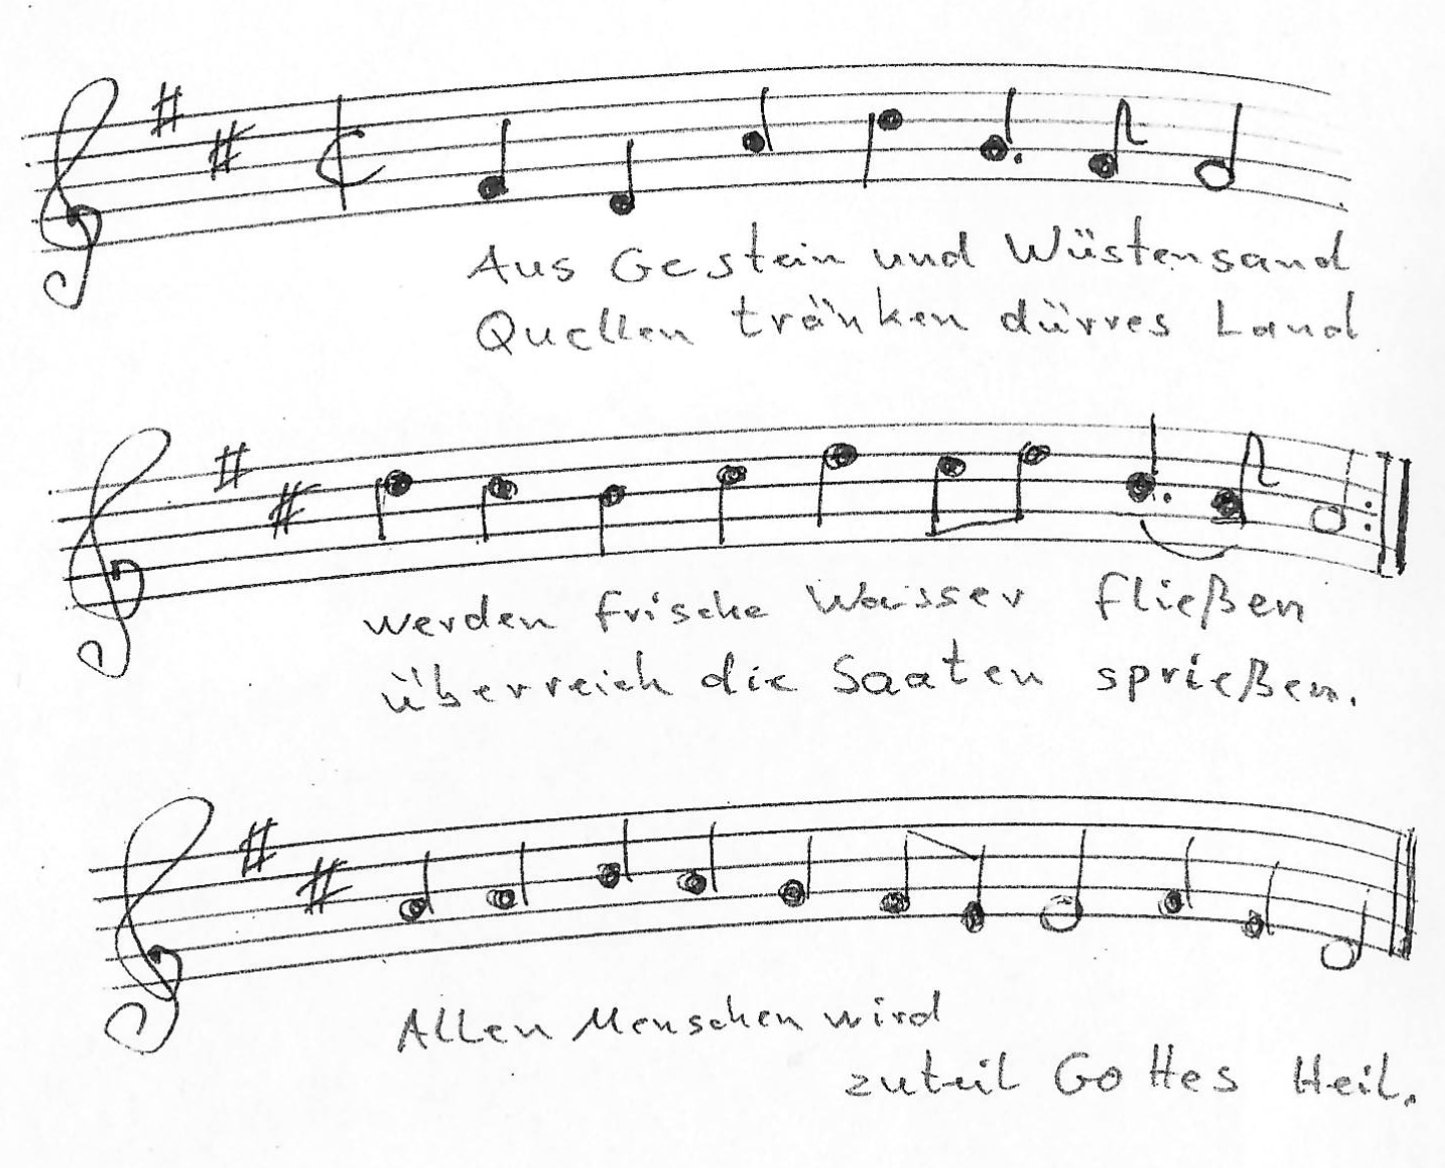 Aus Gestein und Wüstensand
Quellen tränken dürres Land
werden frische Wasser fließen
überreich die Saaten sprießen.
Allen Menschen wird
zuteil Gottes Heil.